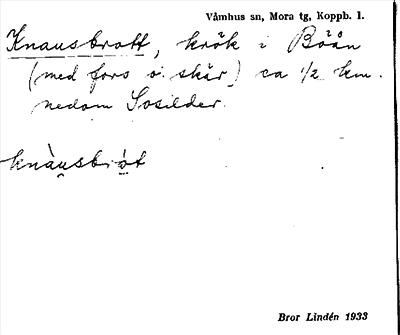 Våmhus sn, Mora tg, Koppb. l.
Knausbrott, krök i Böån
(med fors o. skär) ca 1/2 km.
nedom Sosilder.
knàusbròt
Bror Lindén 1933